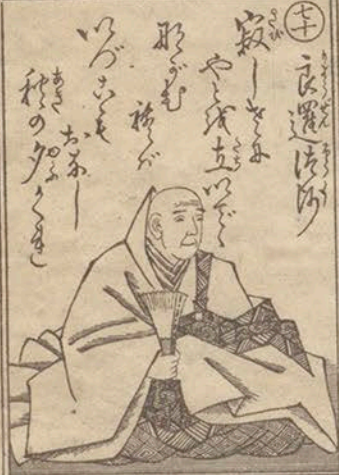 七十
良暹法師
寂しさに
やどを立いでゝ
ながむ
れば
いづこも
おなじ
秋の夕ぐれ